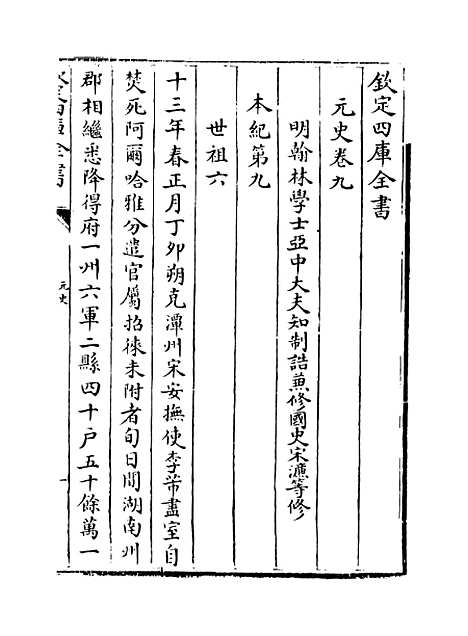 欽定四庫全書
元史卷九
明翰林學士亞中大夫知制誥兼修國史宋濂等修
本紀第九
世祖六
十三年春正月丁夘朔克潭州宋安撫使李芾盡室自
焚死阿爾哈雅分遣官屬招徠未附者旬日間湖南州
郡相繼悉降得府一州六軍二縣四十戶五十餘萬一
欽定四庫全書
元史
一